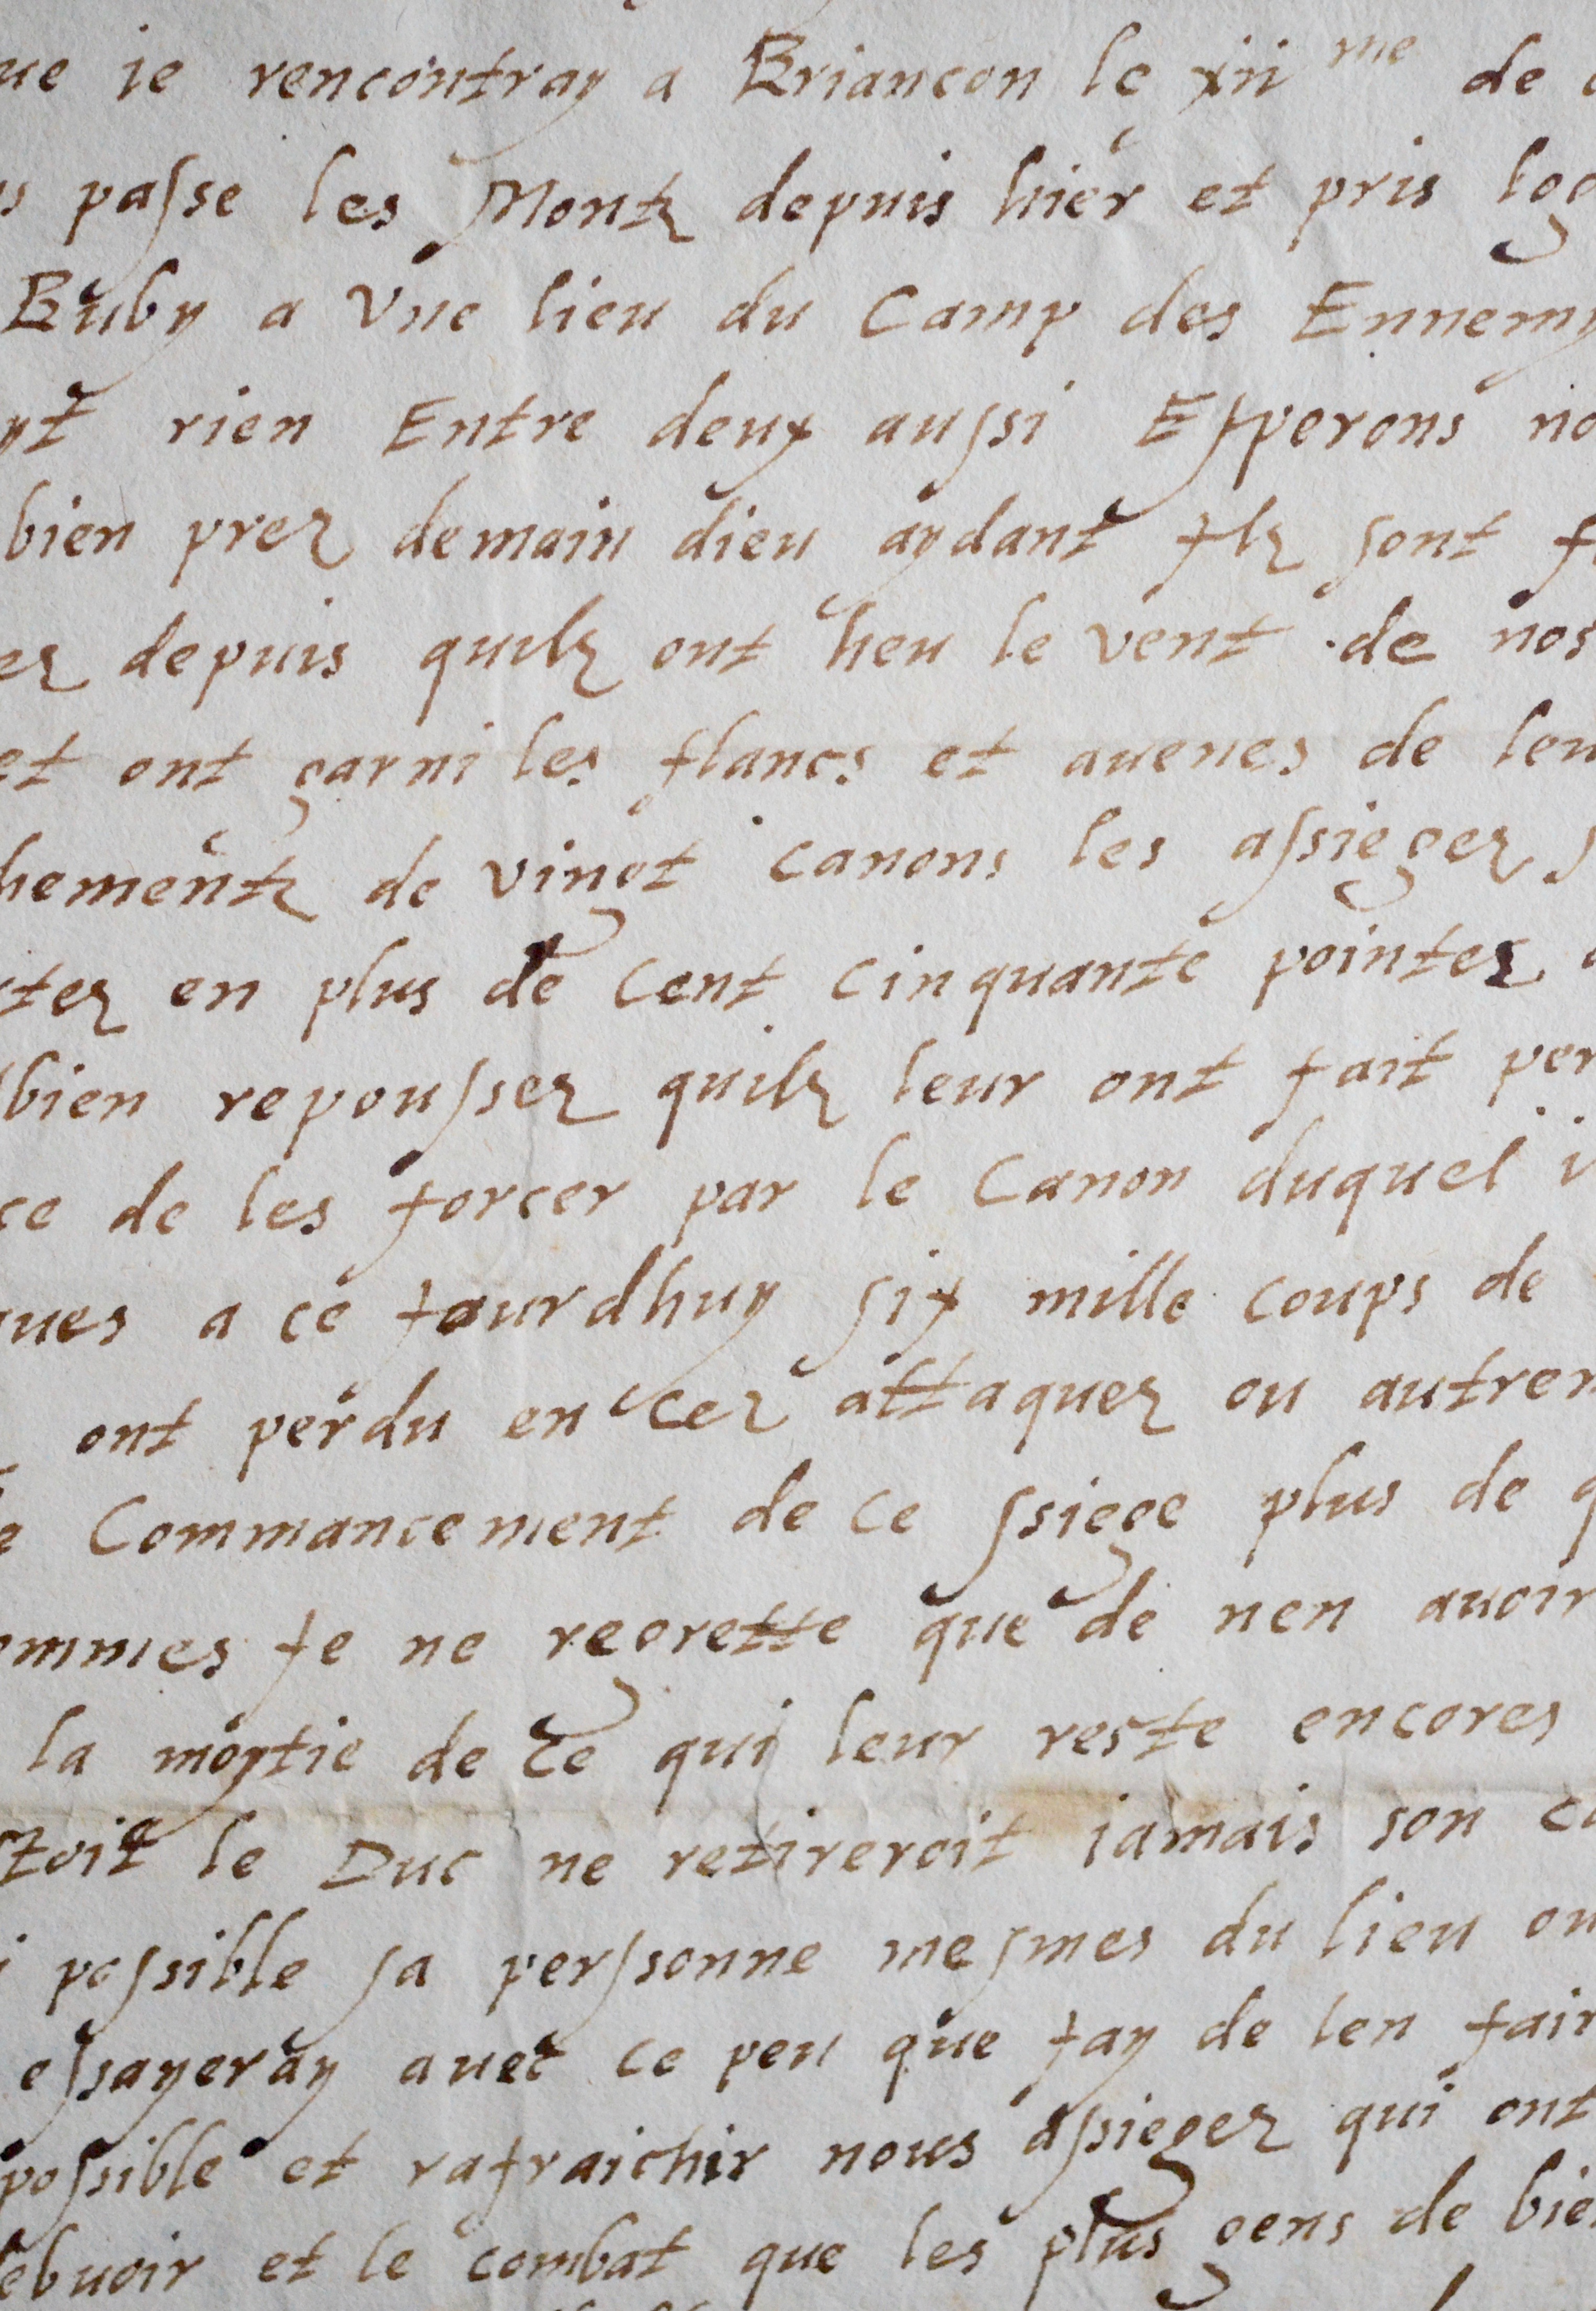 ue ie rencontray a Briancon le xii me de
s passe les Montz depuis hier et pris log
Buby a Vne lieu du Camp des Ennemy
yt rien Entre deux aussi Esperons no
bien prez demain dieu aydant Ilz sont f
ez depuis quilz ont heu le vent de nos
et ont garni les flancs et auenes de leu
hementz de vingt canons les assiegez s
tez en plus de cent cinquante pointes
bien repoussez quilz leur ont fait per
ce de les forcer par le Canon duquel i
ques a ce Jourdhuy six mille coups de
ont perdu en cez attaquez ou autrem
e Commancement de ce ssiege plus de q
ommes Je ne regrette que de nen auoir
la moytie de ce qui leur reste encores
toit le Duc ne retireroit iamais son ca
i possible sa perssonne mesmes du lieu ou
essayeray auec ce peu que Jay de len fair
possible et rafraichir nous assiegez qui ont
ebuoir et le combat que les plus gens de bie